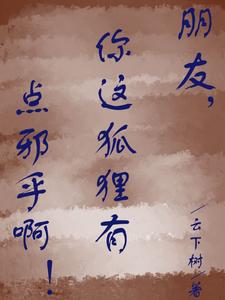 朋友，
你这狐狸有
点邪乎啊！
／云下树／著